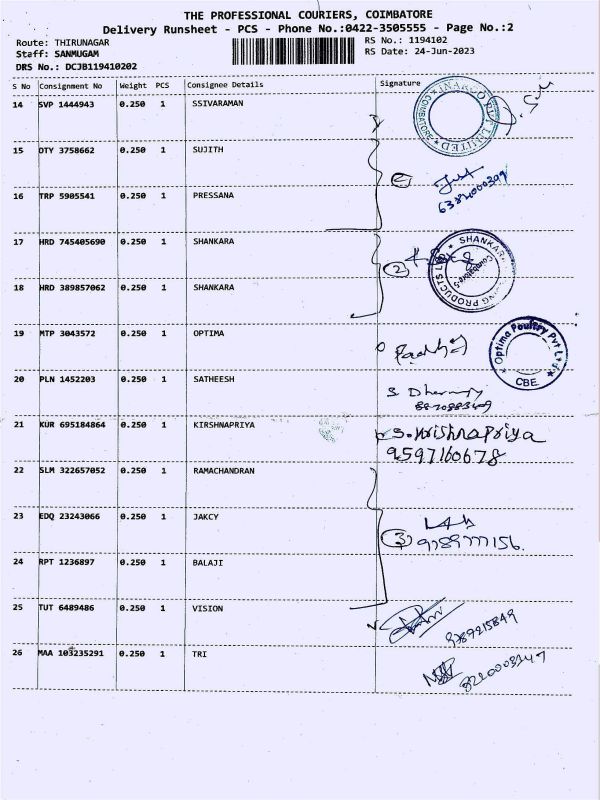 THE PROFESSIONAL COURIERS, COIMBATORE
Delivery Runsheet - PCS - Phone No.:0422-3505555 - Page No.:2
Route: THIRUNAGAR
RS No.: 1194102
Staff: SANMUGAM
RS Date: 24-Jun-2023
DRS No.: DCJB119410202
S No Consignment No Weight PCS Consignee Details Signature
14 SVP 1444943 0.250 1 SSIVARAMAN
15 DTY 3758662 0.250 1 SUJITH
16 TRP 5905541 0.250 1 PRESSANA
6382000309
17 HRD 745405690 0.250 1 SHANKARA
2
SHANKARA
PRODUCTS
Coimbatore-5
18 HRD 389857062 0.250 1 SHANKARA
19 MTP 3043572 0.250 1 OPTIMA
Optima Poultry Pvt Ltd
CBE.
20 PLN 1452203 0.250 1 SATHEESH
21 KUR 695184864 0.250 1 KIRSHNAPRIYA
S. KrishnaPriya
9597160678
22 SLM 322657052 0.250 1 RAMACHANDRAN
23 EDQ 23243066 0.250 1 JAKCY
3
24 RPT 1236897 0.250 1 BALAJI
25 TUT 6489486 0.250 1 VISION
9789215849
26 MAA 103235291 0.250 1 TRI